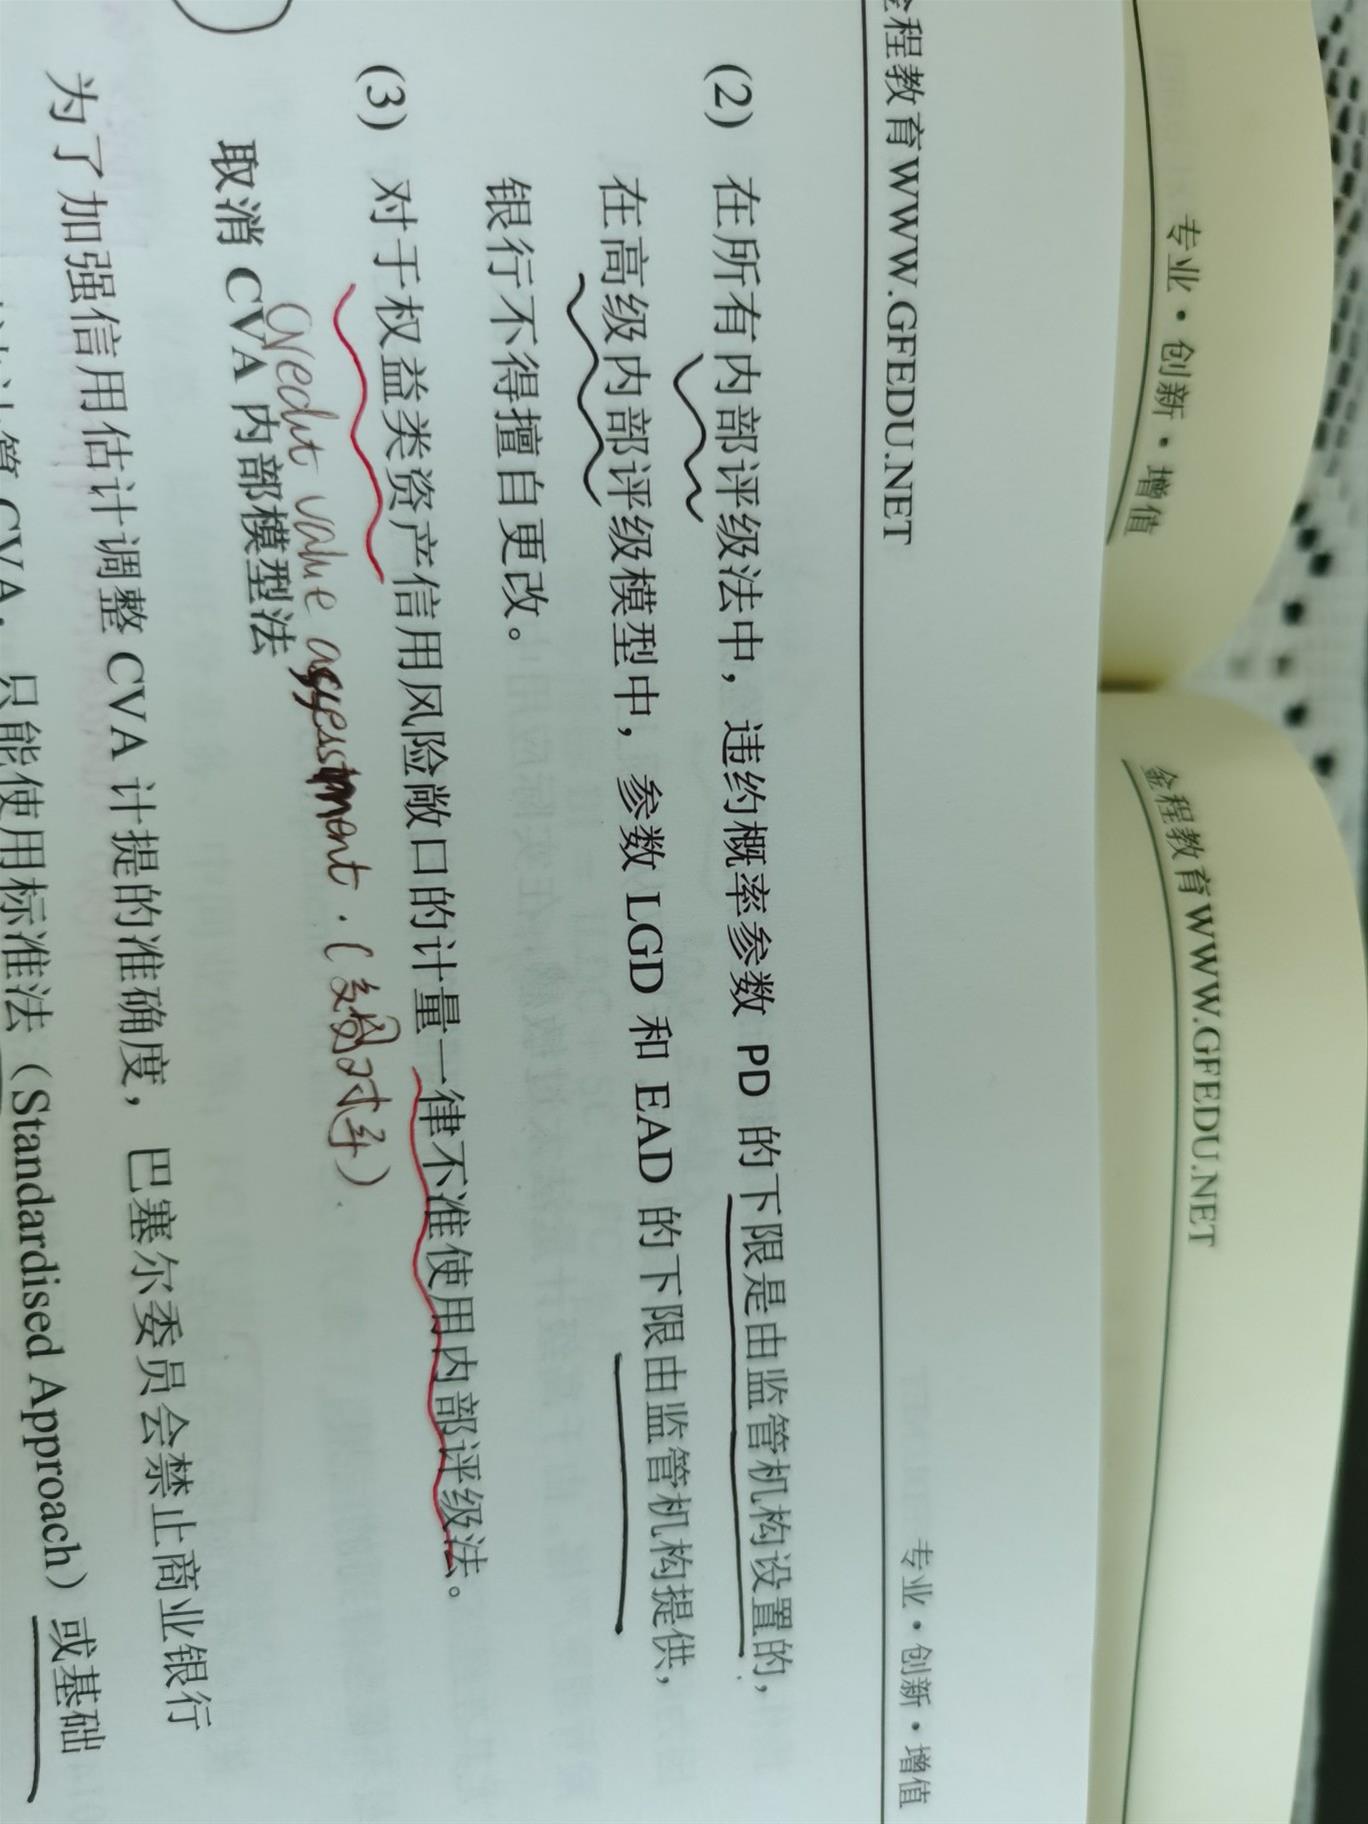 金程教育WWW.GFEDU.NET 专业·创新·增值
(2) 在所有内部评级法中，违约概率参数 PD 的下限是由监管机构设置的，
在高级内部评级模型中，参数 LGD 和 EAD 的下限由监管机构提供，
银行不得擅自更改。
(3) 对于权益类资产信用风险敞口的计量一律不准使用内部评级法。
Credit value
取消 CVA 内部模型法
为了加强信用估计调整 CVA 计提的准确度，巴塞尔委员会禁止商业银行
CVA，只能使用标准法（Standardised Approach）或基础
专业·创新·增值
金程教育WWW.GFEDU.NET